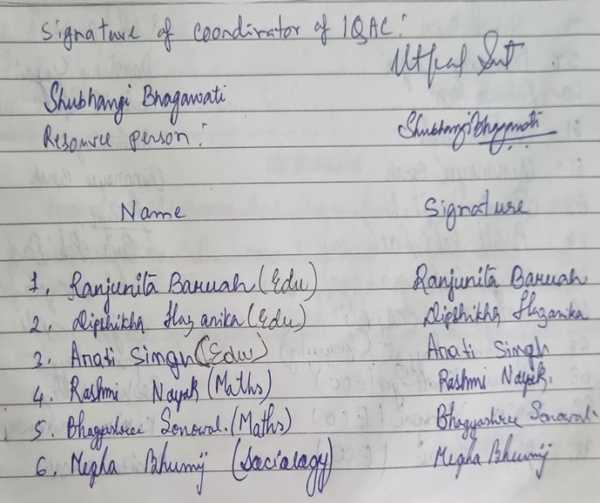 Signature of coordinator of IQAC:
Utpal Sut
Shubhangi Bhagawati
Resource person: Shubhangi Bhagawati
Name Signature
1. Ranjunita Baruah (Edu) Ranjunita Baruah
2. Dipshikha Hazarika (Edu) Dipshikha Hazarika
3. Arati Singh (Edu) Arati Singh
4. Rashmi Nayak (Maths) Rashmi Nayak.
5. Bhagyashree Sonowal. (Maths) Bhagyashree Sonowal.
6. Megha Bhumij (Sociology) Megha Bhumij